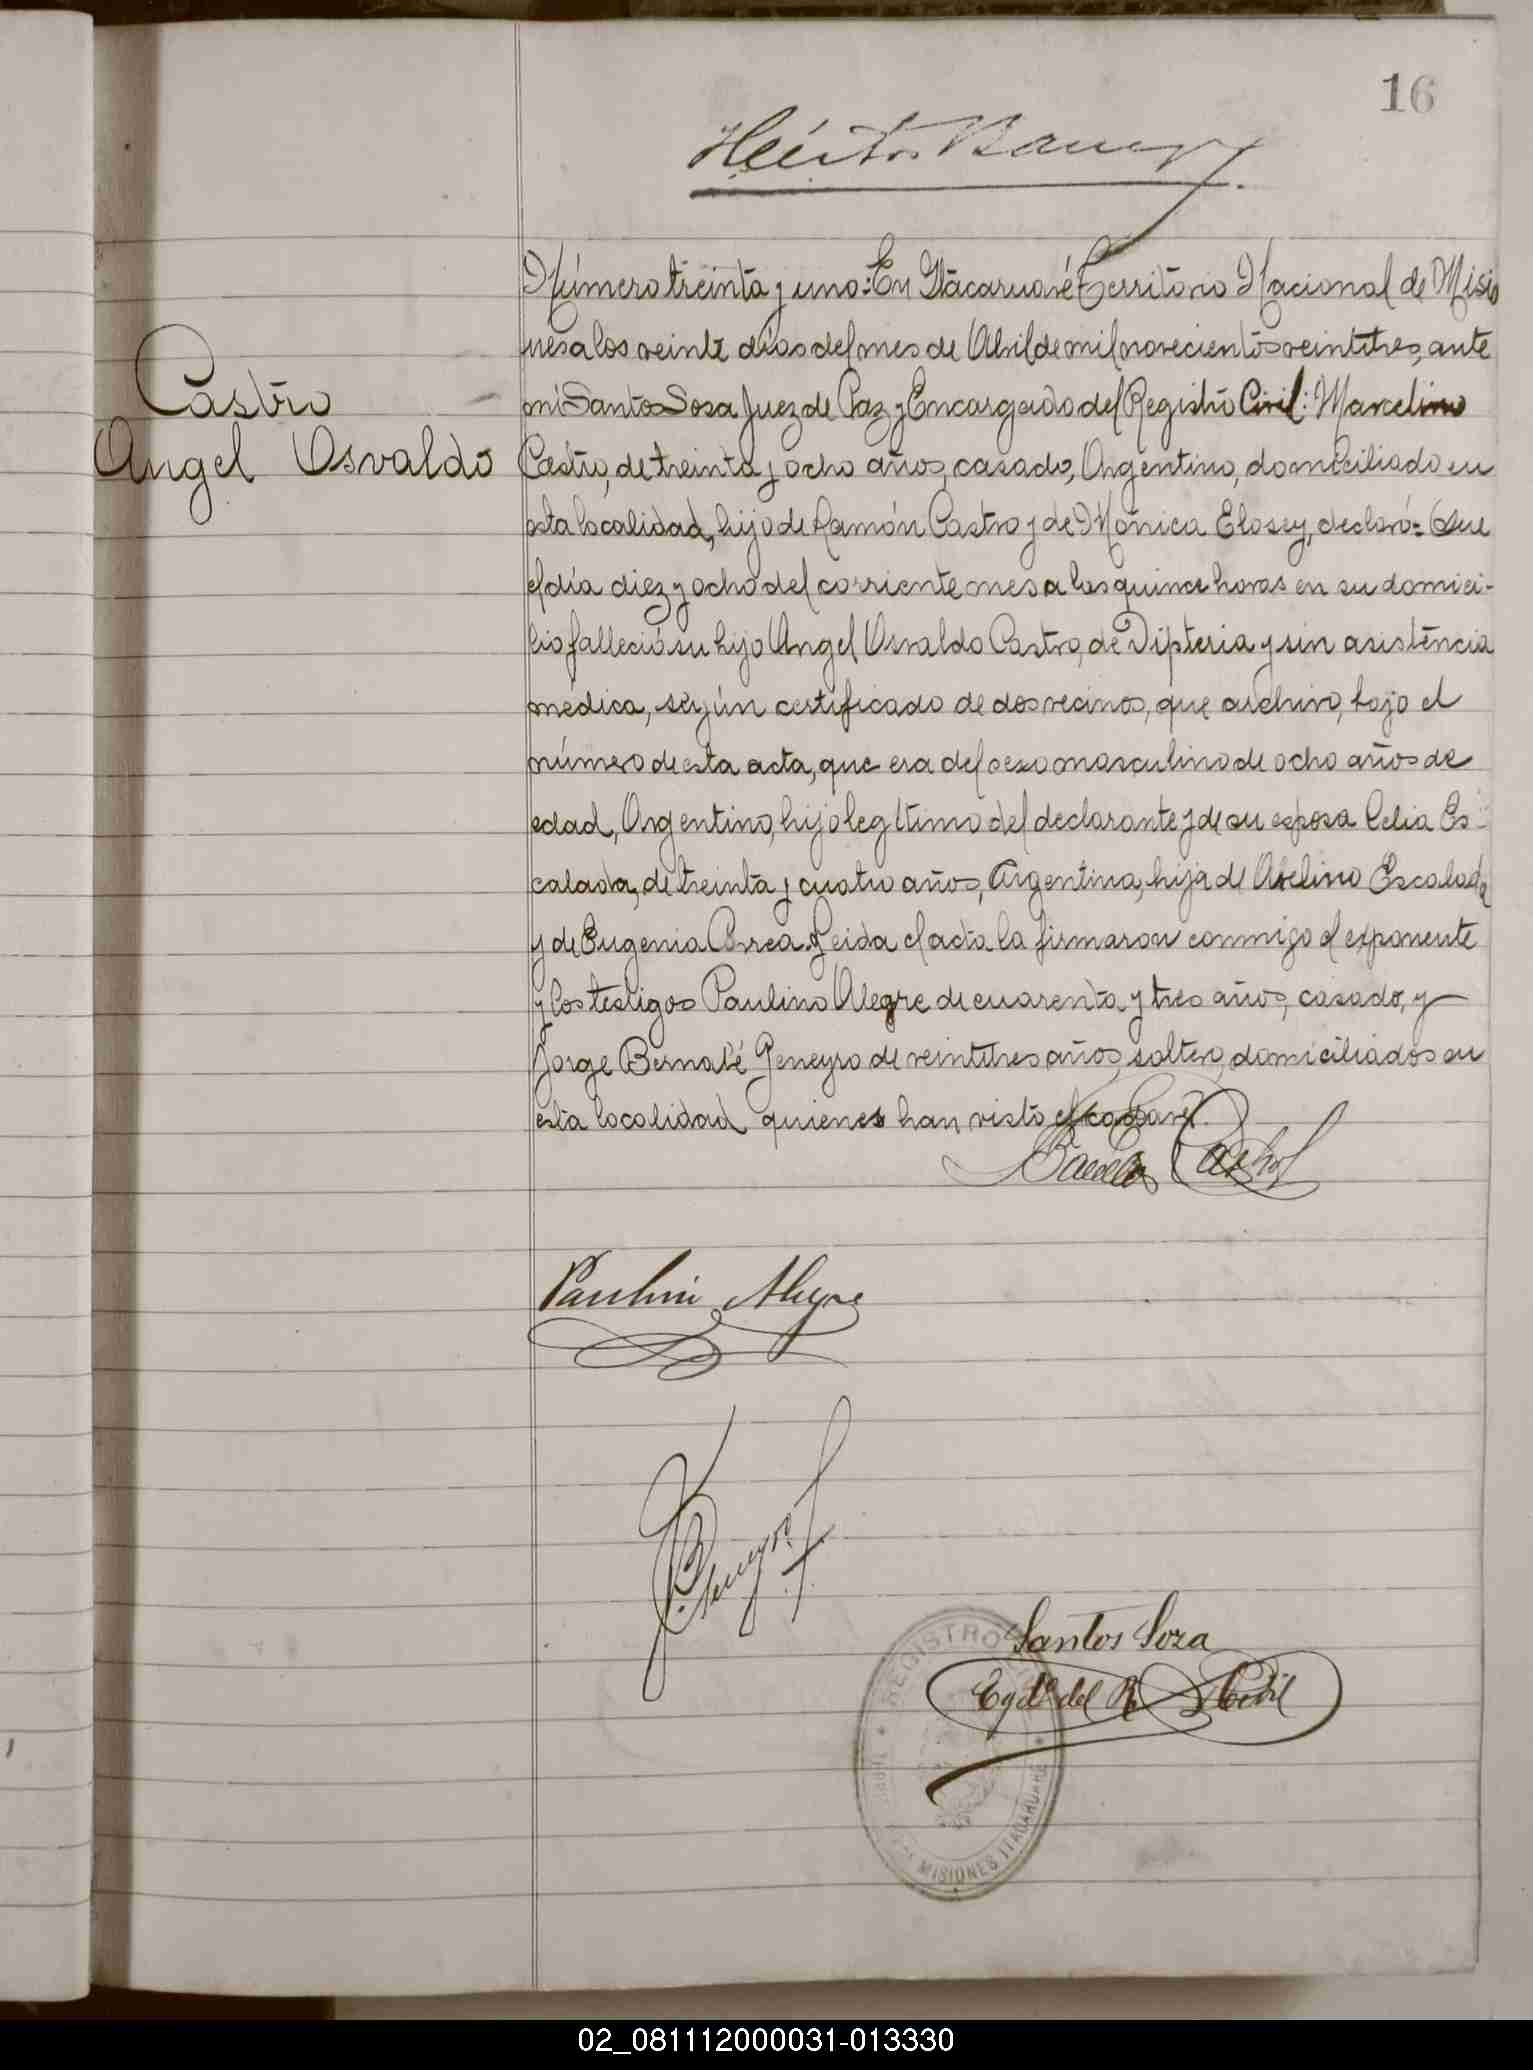 16
Héctor
Número treinta y uno: En Itacaruaré Territorio Nacional de Misio
nes a los veinte días del mes de Abril de mil novecientos veintitres, ante
mí Santos Sosa Juez de Paz y Encargado del Registro Civil: Marcelino
Castro
Angel Osvaldo
Castro, de treinta y ocho años, casado, Argentino, domiciliado en
esta localidad, hijo de Ramón Castro y de Mónica Elosey, declaró: Que
el día diez y ocho del corriente mes a las quince horas en su domici-
lio falleció su hijo Angel Osvaldo Castro, de Dipteria y sin asistencia
médica, según certificado de dos vecinos, que archivo, bajo el
número de esta acta, que era del sexo masculino de ocho años de
edad, Argentino, hijo legítimo del declarante y de su esposa Celia Es-
calada, de treinta y cuatro años, Argentina, hija de Avelino Escalada
y de Eugenia Correa. Leida el acta la firmaron conmigo el exponente
y los testigos Paulino Alegre de cuarenta y tres años, casado, y
Jorge Bernabé Geneyro de veintitres años, soltero, domiciliados en
esta localidad quienes han visto el cadaver.
Castro
Paulino Alegre
Santos Soza
Egdo del R Civil
REGISTRO
MISIONES ITACARUARÉ
02_081112000031-013330